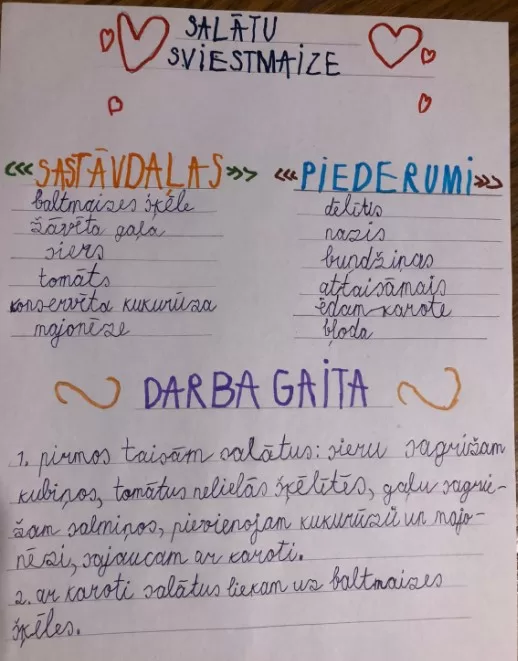 SALĀTU
SVIESTMAIZE
SASTĀVDAĻAS
baltmaizes šķēle
žāvēta gaļa
siers
tomāts
konservēta kukurūza
majonēze
PIEDERUMI
dēlītis
nazis
bundžiņas
attaisāmais
ēdam karote
bļoda
DARBA GAITA
1. pirmos taisām salātus: sieru sagrižam
kubiņos, tomātus nelielās šķēlītēs, gaļu sagrie-
žam salmiņos, pievienojam kukurūzu un majo-
nēzi, sajaucam ar karoti.
2. ar karoti salātus liekam uz baltmaizes
šķēles.